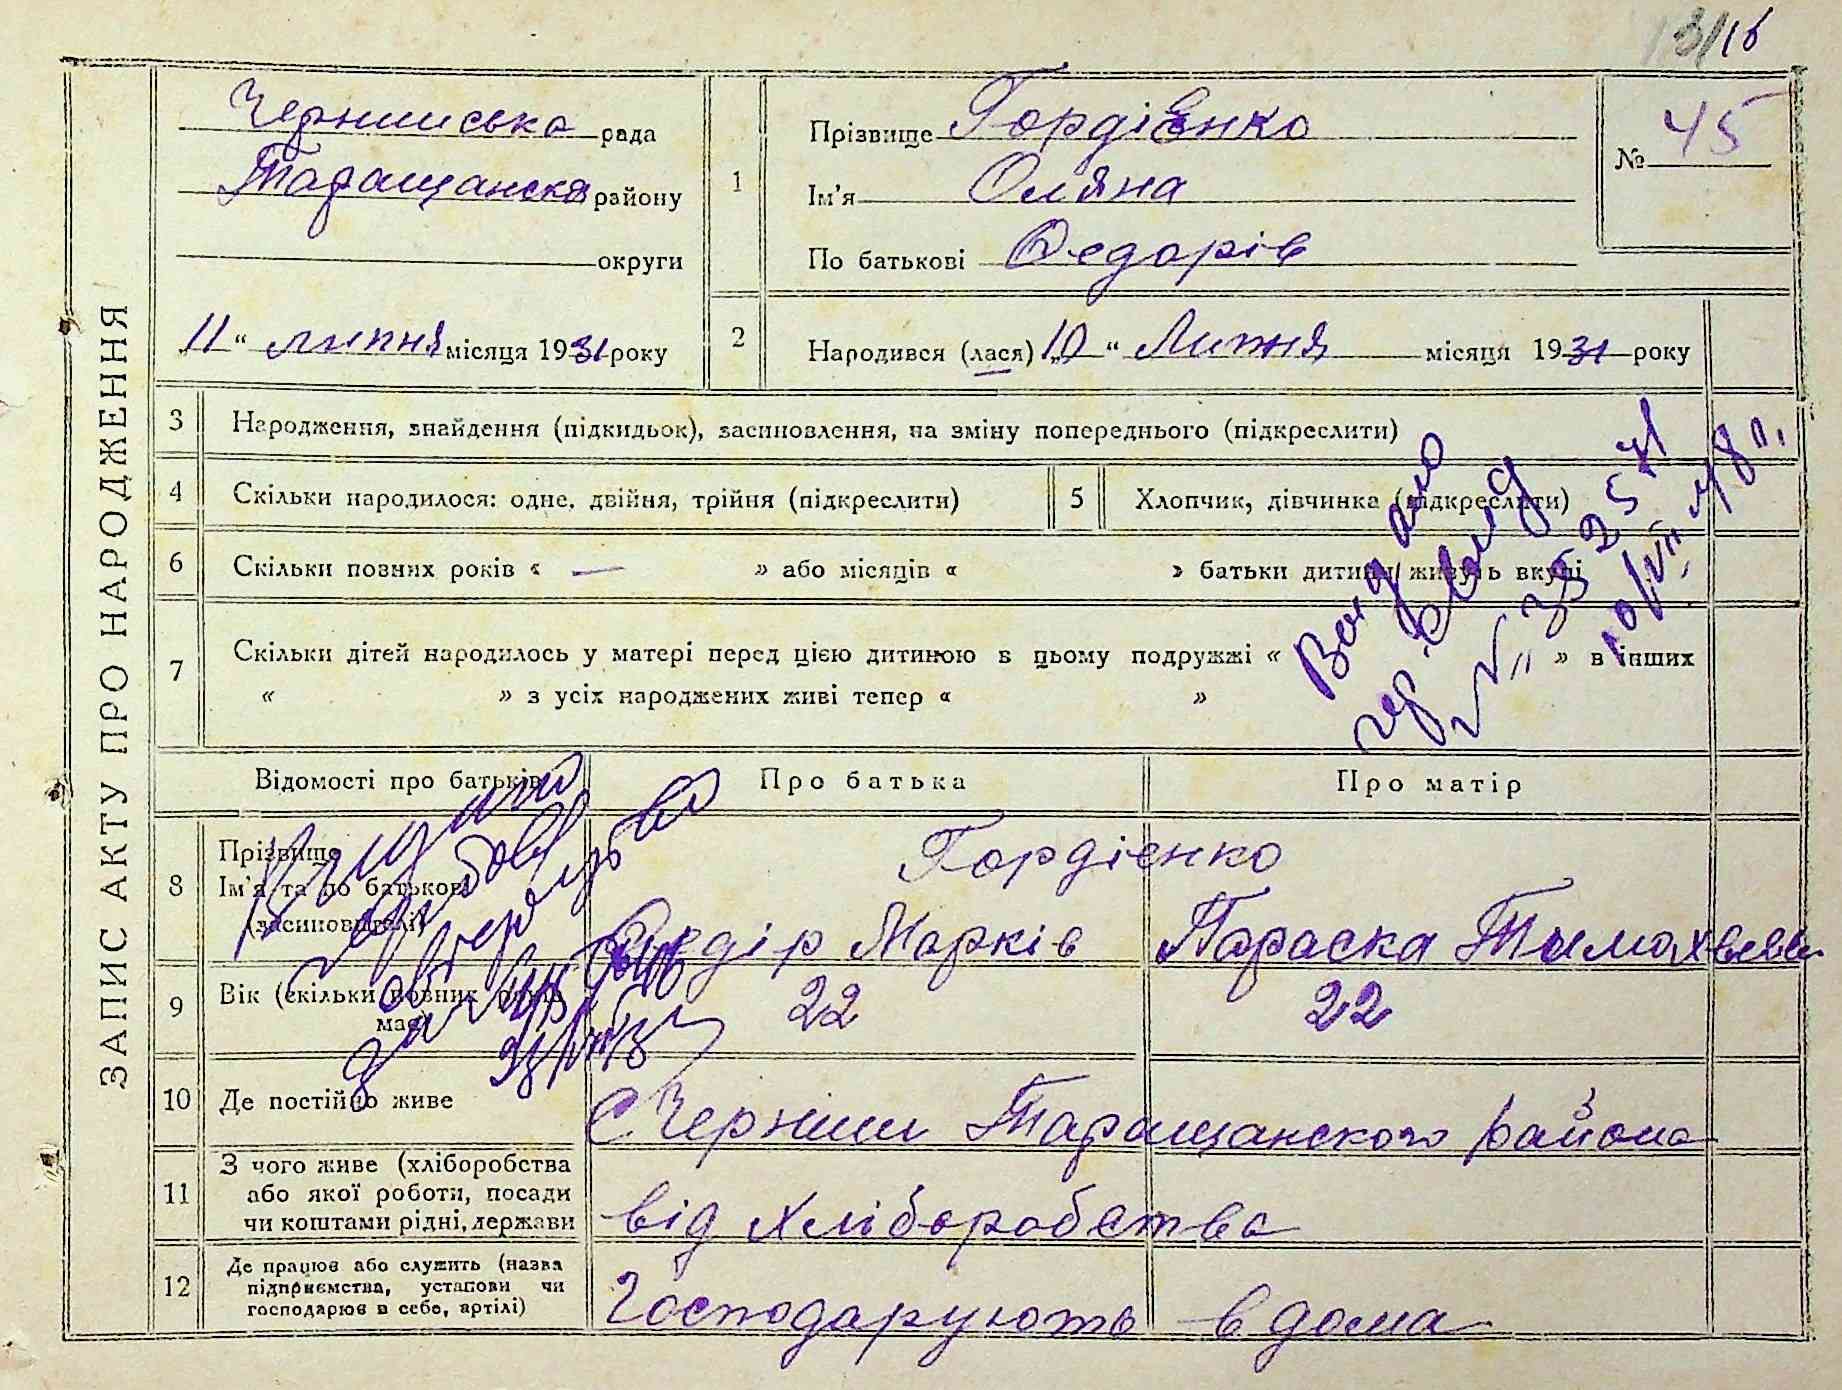 31 16
Черниська рада
Таращанска району
округи
„11“ липня місяця 1931 року
1
Прізвище Гордієнко
Ім'я Оляна
По батькові Федорів
№ 45
2
Народився (лася) „10“ Липня місяця 1931 року
ЗАПИС АКТУ ПРО НАРОДЖЕННЯ
3 Народження, знайдення (підкидьок), засиновлення, на зміну попереднього (підкреслити)
4 Скільки народилося: одне, двійня, трійня (підкреслити)
5 Хлопчик, дівчинка (підкреслити)
6 Скільки повних років « — » або місяців « » батьки дитини живуть вкупі
7 Скільки дітей народилось у матері перед цією дитиною в цьому подружжі « » в інших
« » з усіх народжених живі тепер « »
Видано
Відомості про батьків
Про батька
Про матір
8 Прізвище
Ім'я та по батькові
(засиновителі)
Гордієнко
Федір Марків
Параска
9 Вік (скільки повних років
має)
22
22
10 Де постійно живе
С. Черниш Таращанского района
11 З чого живе (хліборобства
або якої роботи, посади
чи коштами рідні, держави
від хліборобства
12 Де працює або служить (назва
підприємства, установи чи
господарює в себе, артілі)
Господарують вдома